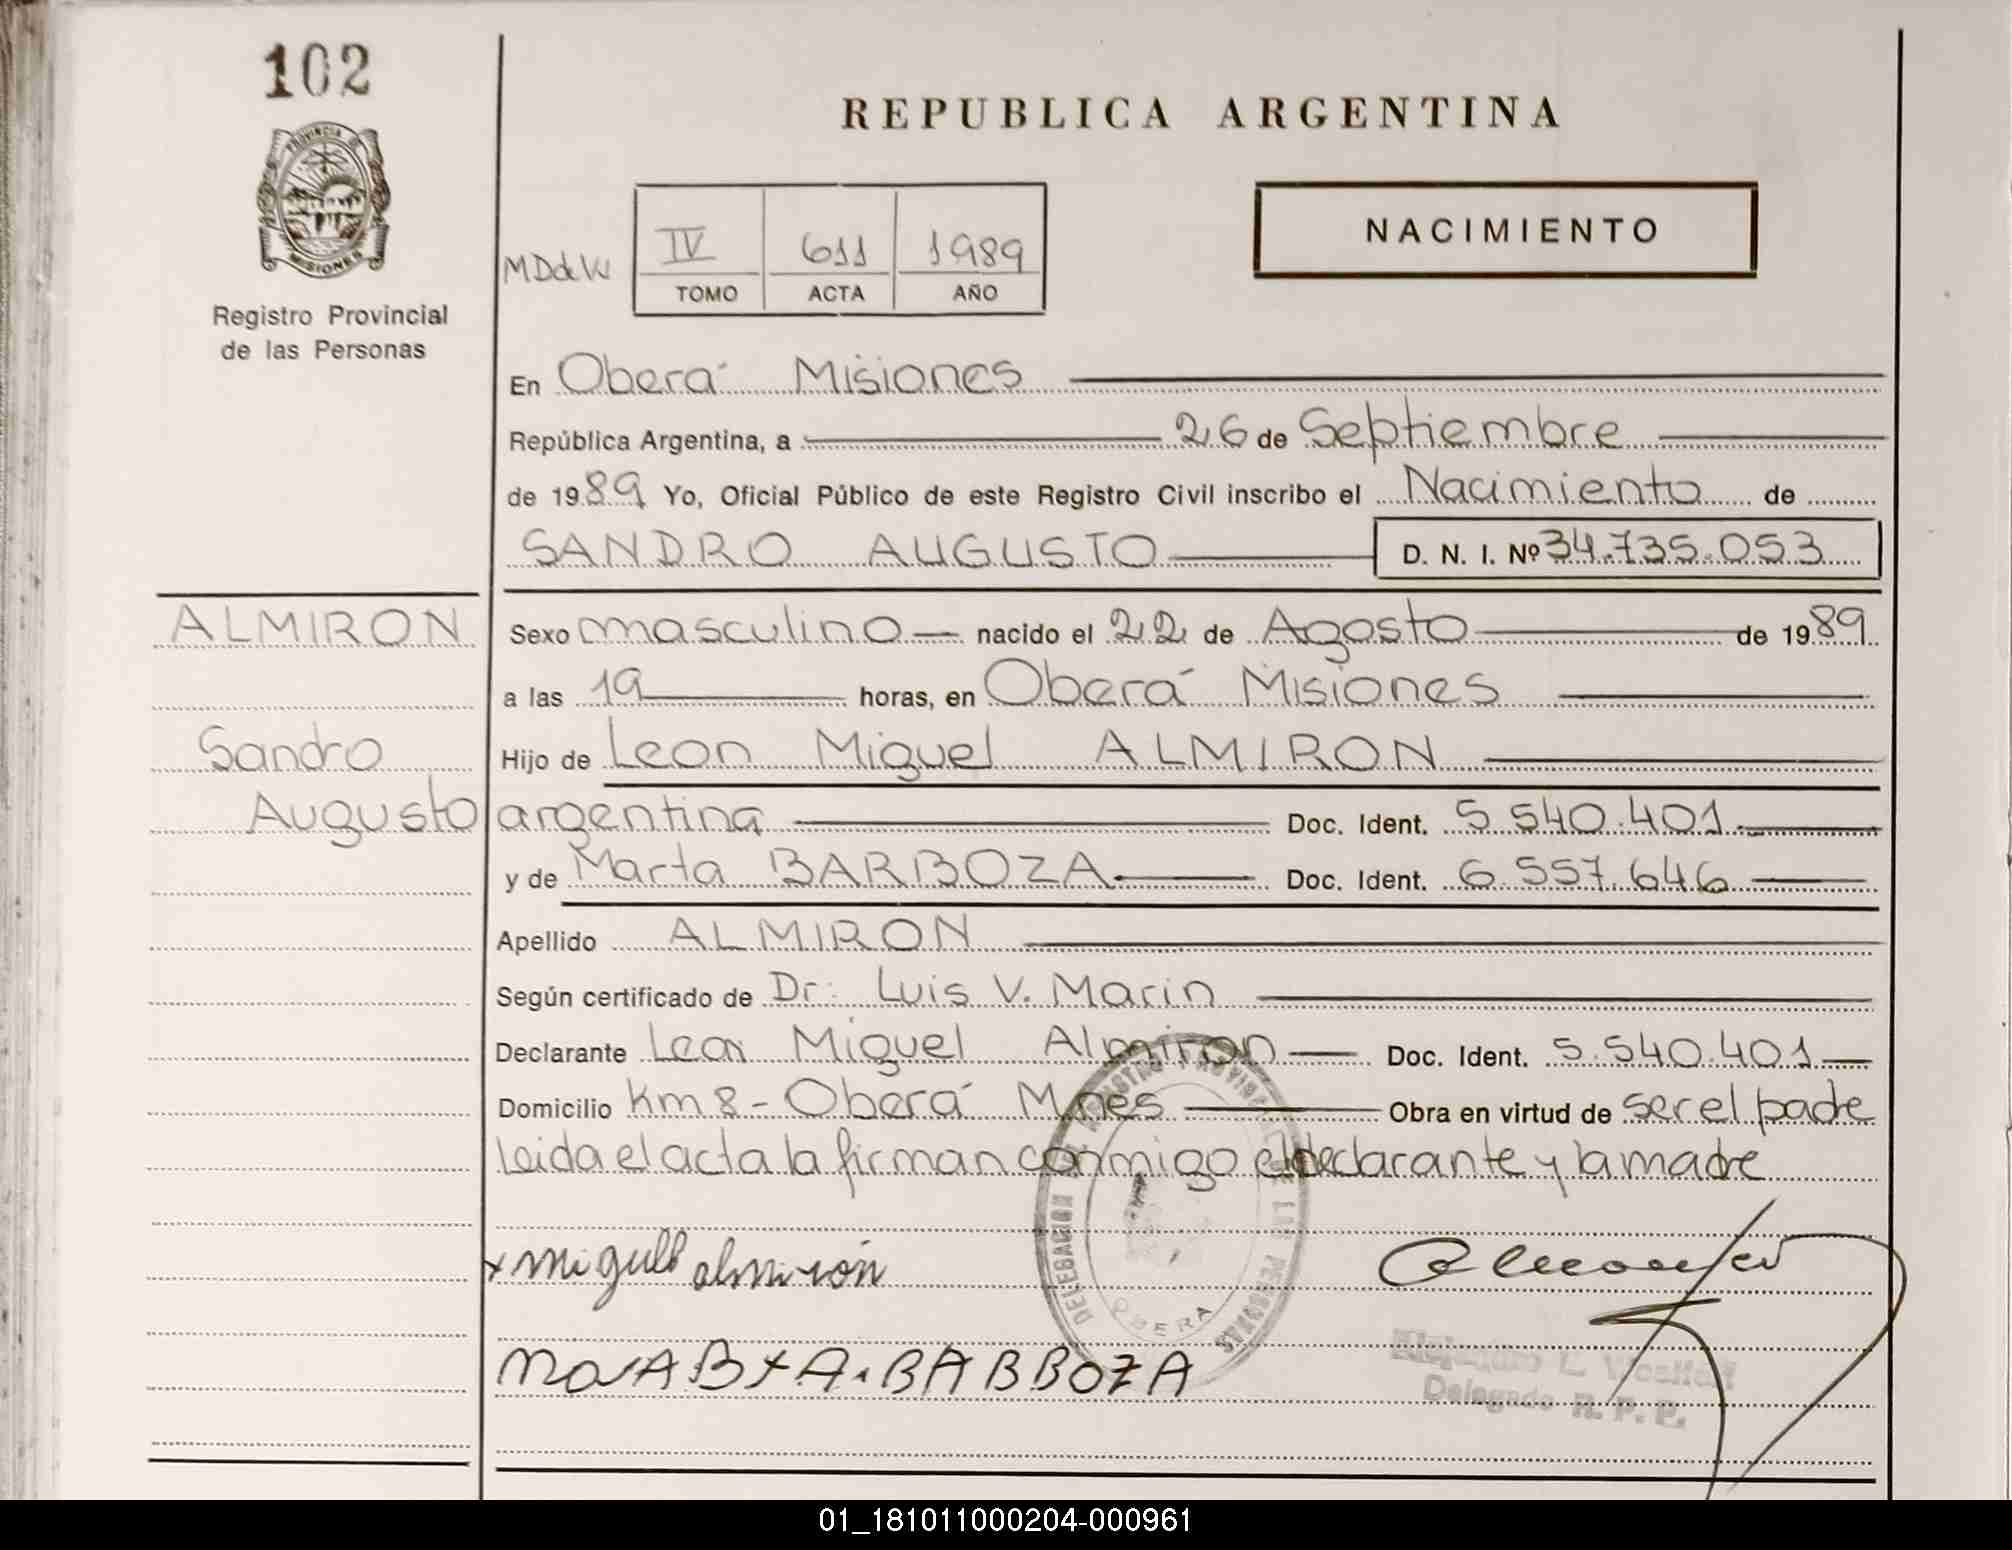 102
PROVINCIA DE
MISIONES
Registro Provincial
de las Personas
REPUBLICA ARGENTINA
NACIMIENTO
MDdeW
IV 611 1989
TOMO ACTA AÑO
En Oberá Misiones
República Argentina, a 26 de Septiembre
de 1989 Yo, Oficial Público de este Registro Civil inscribo el Nacimiento de
SANDRO AUGUSTO D. N. I. Nº 34.735.053
ALMIRON
Sandro
Augusto
Sexo masculino nacido el 22 de Agosto de 1989
a las 19 horas, en Oberá Misiones
Hijo de Leon Miguel ALMIRON
argentina Doc. Ident. 5.540.401
y de Marta BARBOZA Doc. Ident. 6.557.646
Apellido ALMIRON
Según certificado de Dr. Luis V. Marin
Declarante Leon Miguel Almiron Doc. Ident. 5.540.401
Domicilio Km 8 - Oberá Mnes Obra en virtud de ser el padre
Leida el acta la firman conmigo el declarante y la madre
x miguel almirón
BARBOZA
DELEGACION DEL REGISTRO PROVINCIAL DE LAS PERSONAS
OBERA
Delegado R. P. P.
01_181011000204-000961